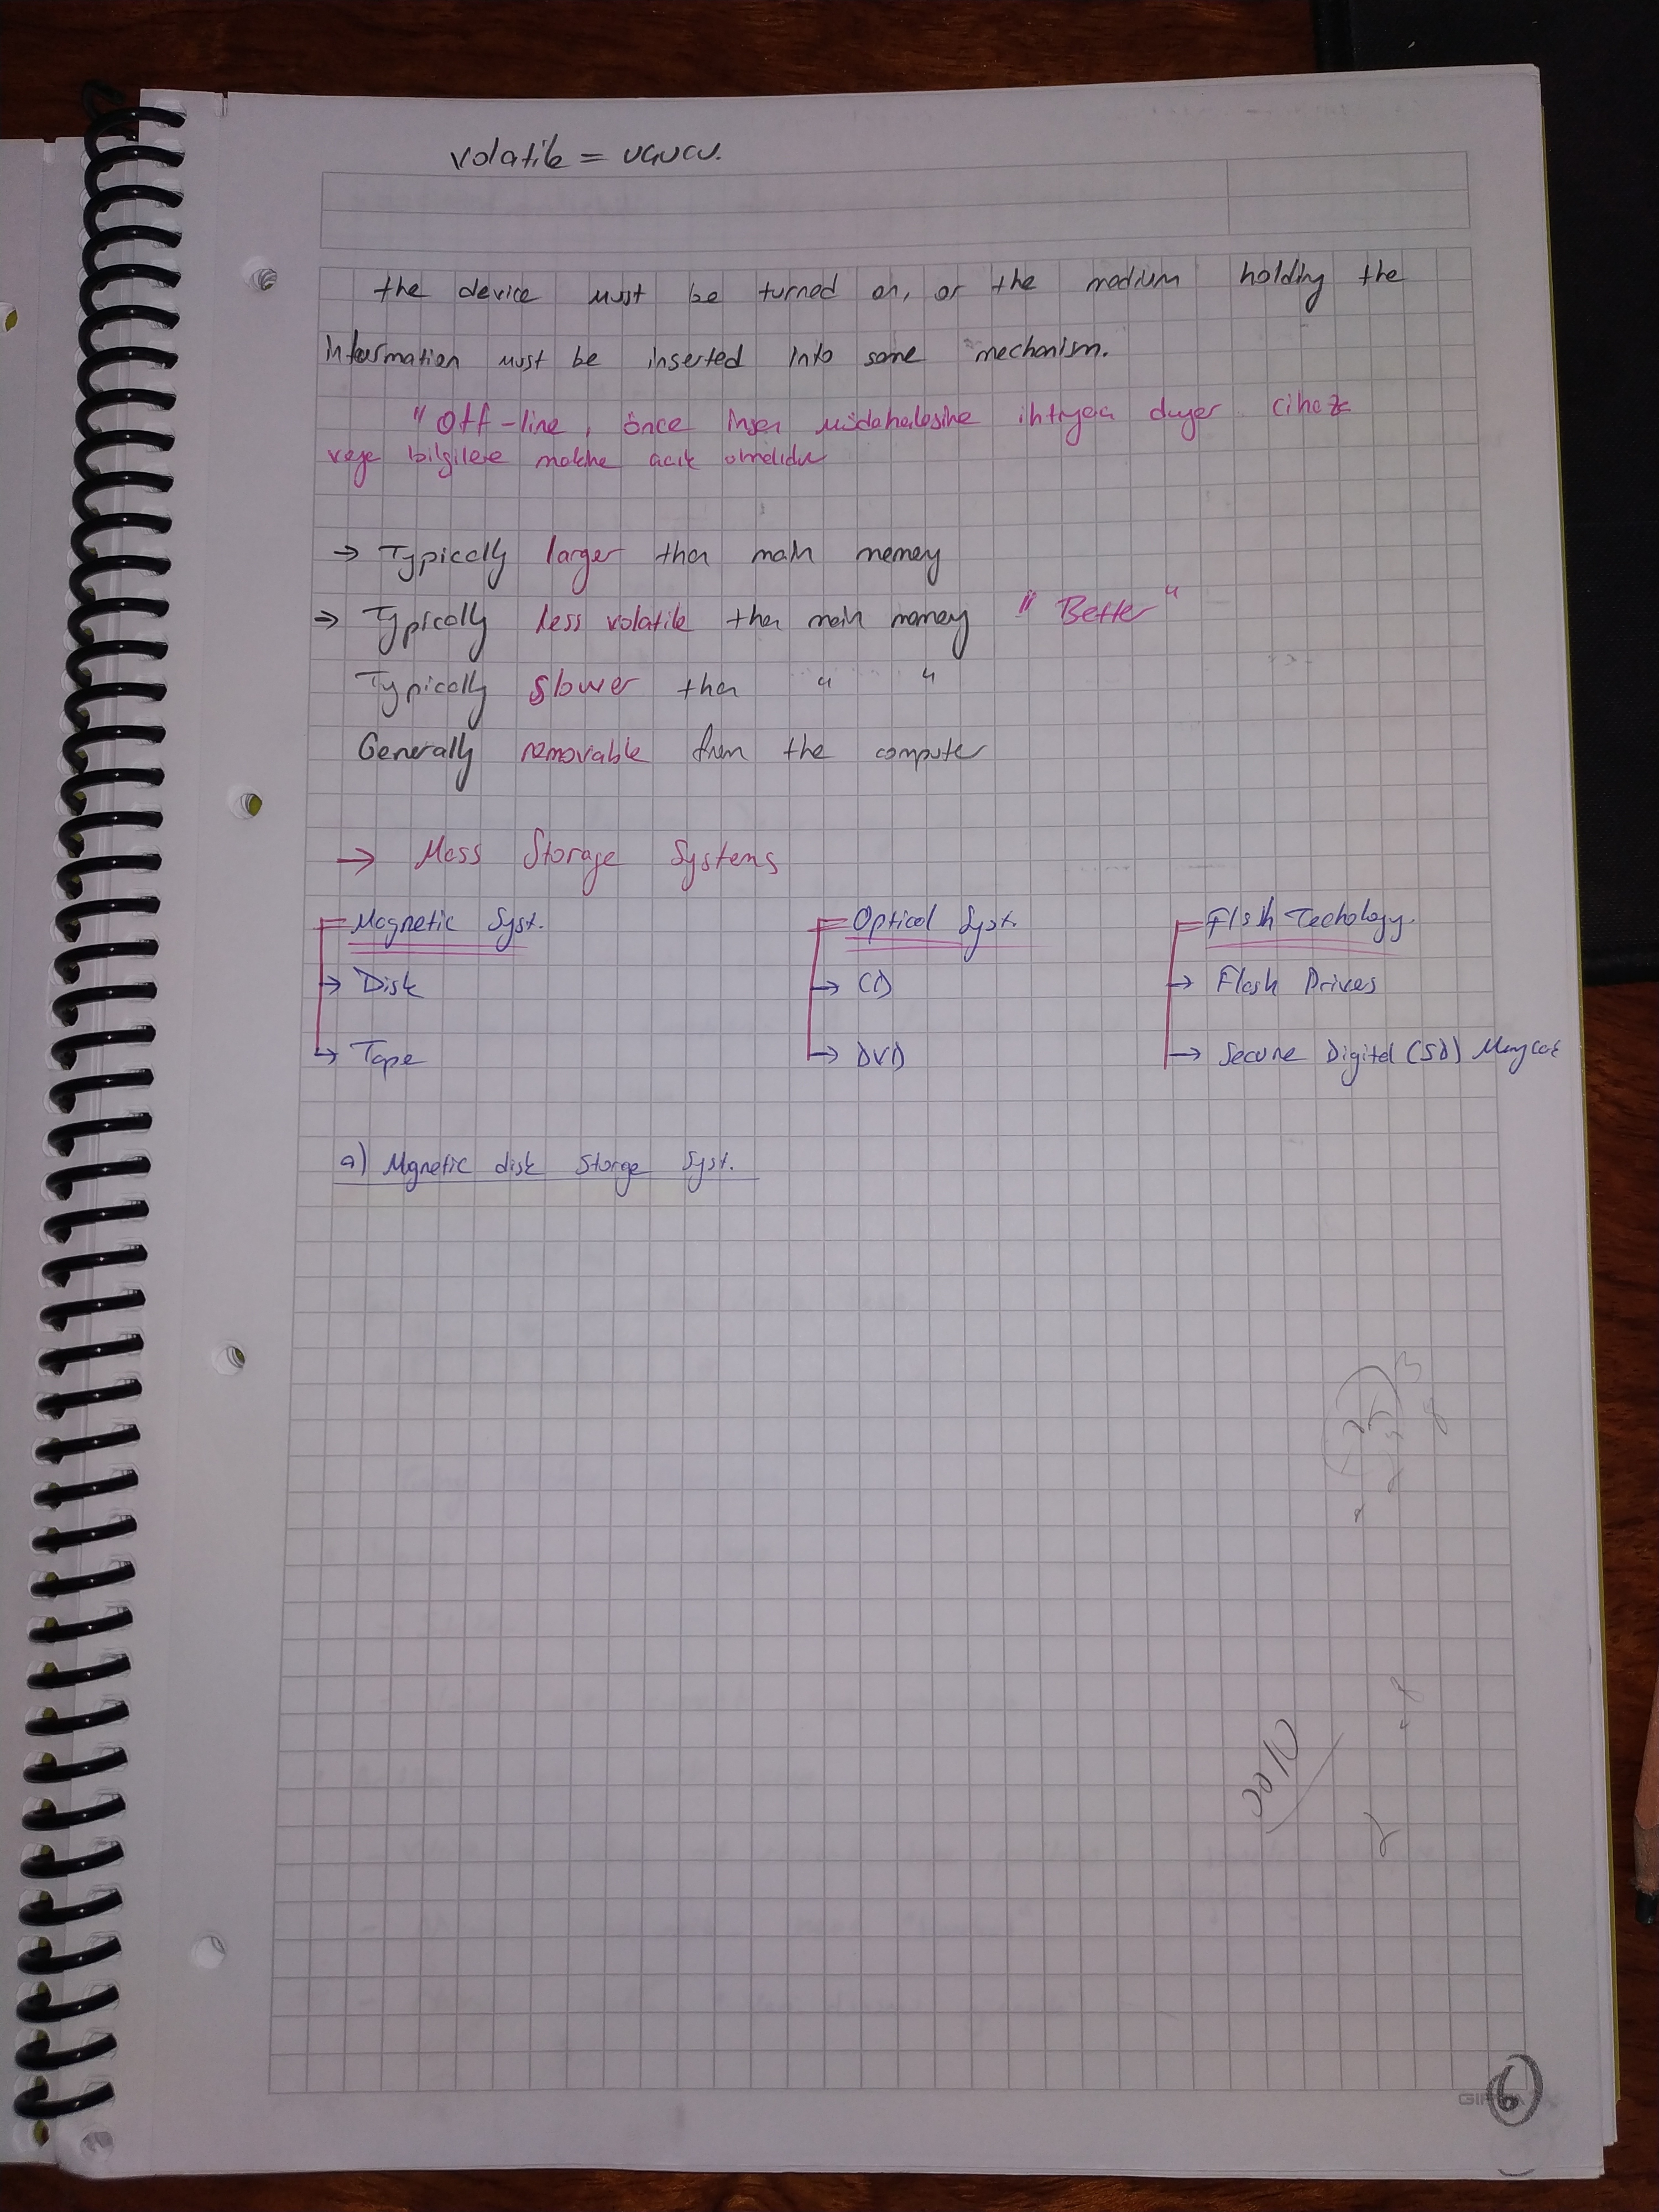 volatile = uçucu.
the device must be turned on, or the medium holding the
Information must be inserted into some mechanism.
"Off-line, önce insan müdahalesine ihtiyacı duyar cihaz
veya bilgilere makine açık olmalıdır
→ Typically larger than main memory
→ Typically less volatile than main memory "Better"
Typically slower than " "
Generally removable from the computer
→ Mass Storage Systems
Magnetic Syst. Optical Syst. Flsh Techology.
→ Disk → CD → Flash Drives
→ Tape → DVD → Secure Digital (SD) Mmycat
a) Mgnetic disk Storge Syst.
6